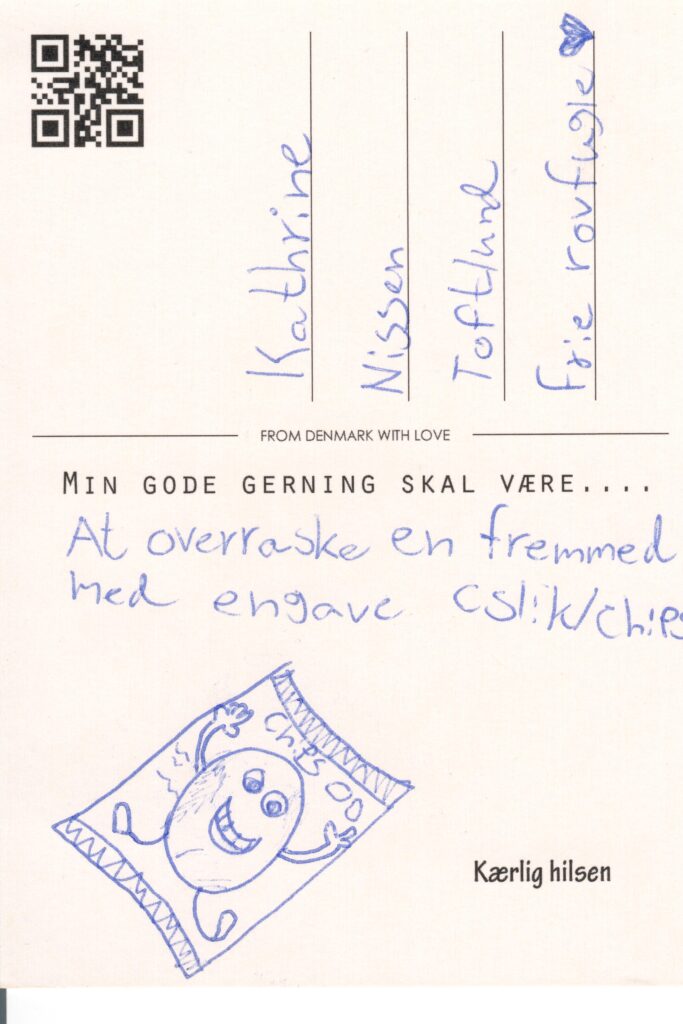 Kathrine
Nissen
Toftlund
Frie rovfugle
FROM DENMARK WITH LOVE
MIN GODE GERNING SKAL VÆRE....
At overraske en fremmed
med engave (slik/chips
Chips
Kærlig hilsen